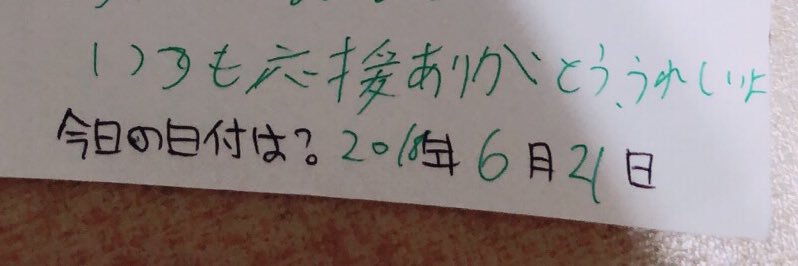 いつも応援ありがとう、うれしいよ
今日の日付は？2018年6月21日